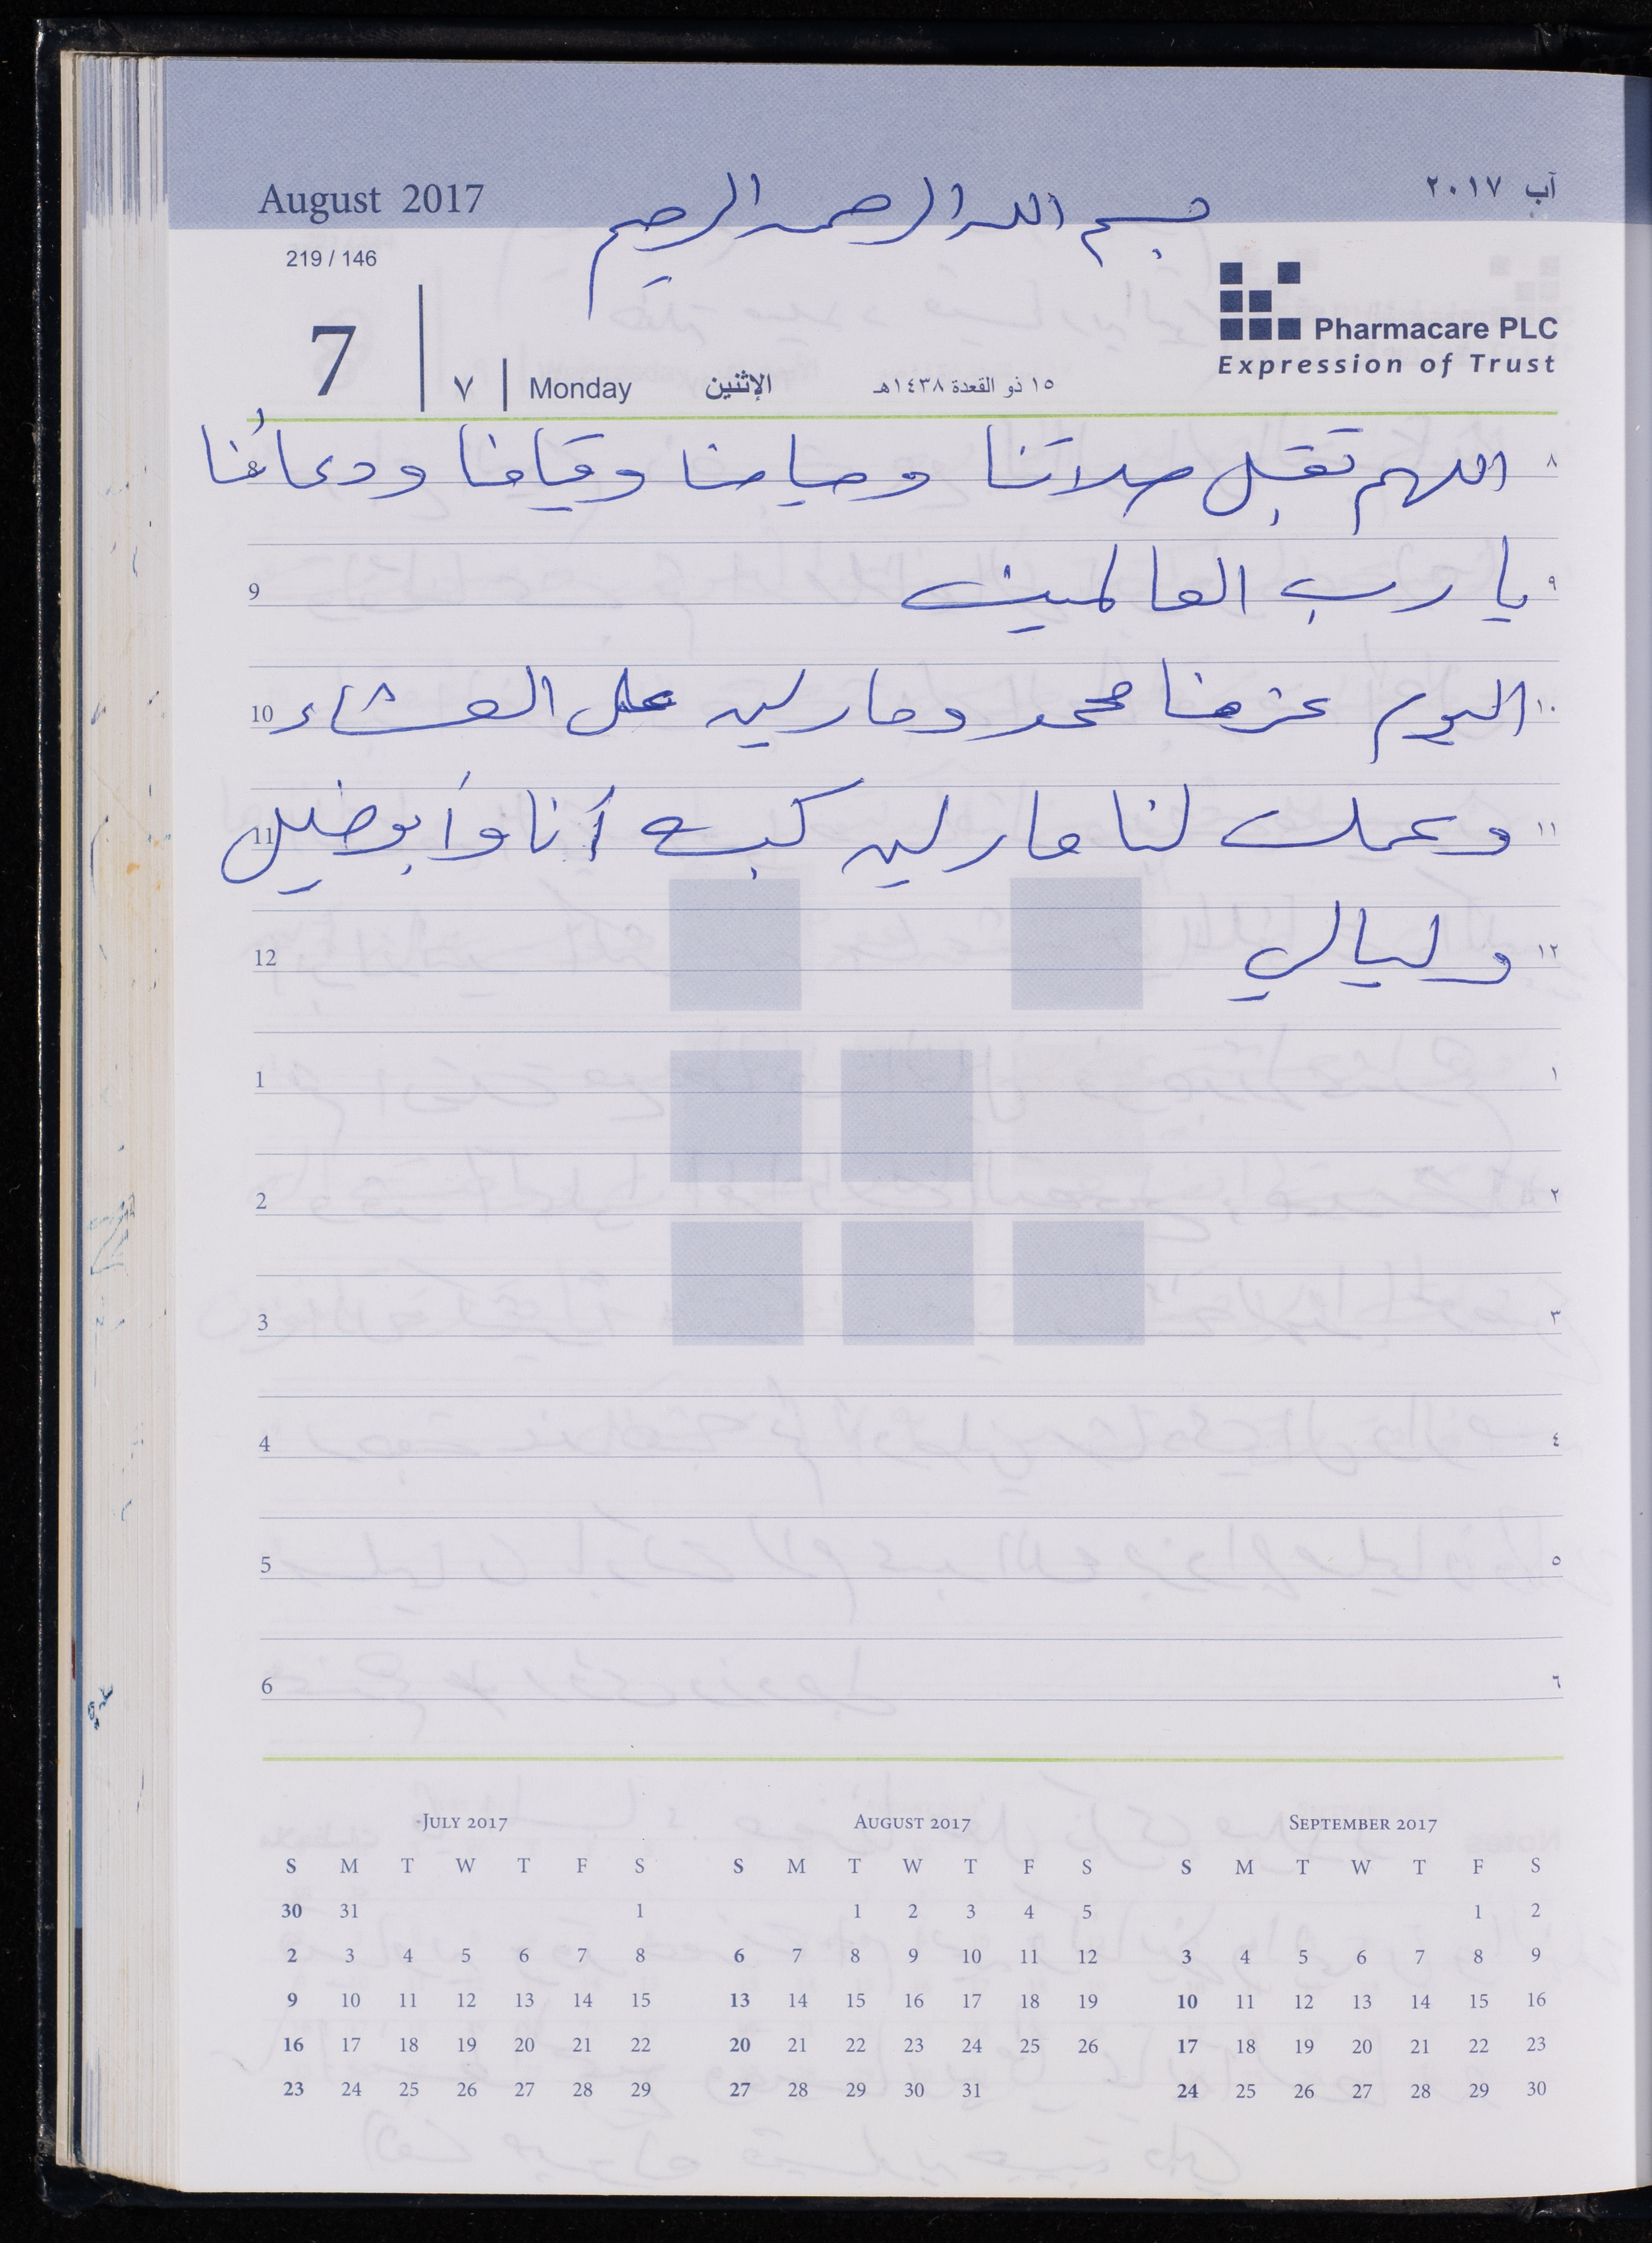 August 2017
آب ٢٠١٧
بسم الله الرحمن الرحيم
219 / 146
Pharmacare PLC
Expression of Trust
7 | ٧ | Monday الإثنين ١٥ ذو القعدة ١٤٣٨هـ
٨ اللهم تقبل صلاتنا وصيامنا وقيامنا ودعائنا
9 ٩ يا رب العالمين
10 ١٠ اليوم عزمنا محمد ومارلين على العشاء
11 ١١ وعملت لنا مارلين كبه أنا وأبو خليل
12 ١٢ وليالي
1 ١
2 ٢
3 ٣
4 ٤
5 ٥
6 ٦
JULY 2017
S M T W T F S
30 31 1
2 3 4 5 6 7 8
9 10 11 12 13 14 15
16 17 18 19 20 21 22
23 24 25 26 27 28 29
AUGUST 2017
S M T W T F S
1 2 3 4 5
6 7 8 9 10 11 12
13 14 15 16 17 18 19
20 21 22 23 24 25 26
27 28 29 30 31
SEPTEMBER 2017
S M T W T F S
1 2
3 4 5 6 7 8 9
10 11 12 13 14 15 16
17 18 19 20 21 22 23
24 25 26 27 28 29 30